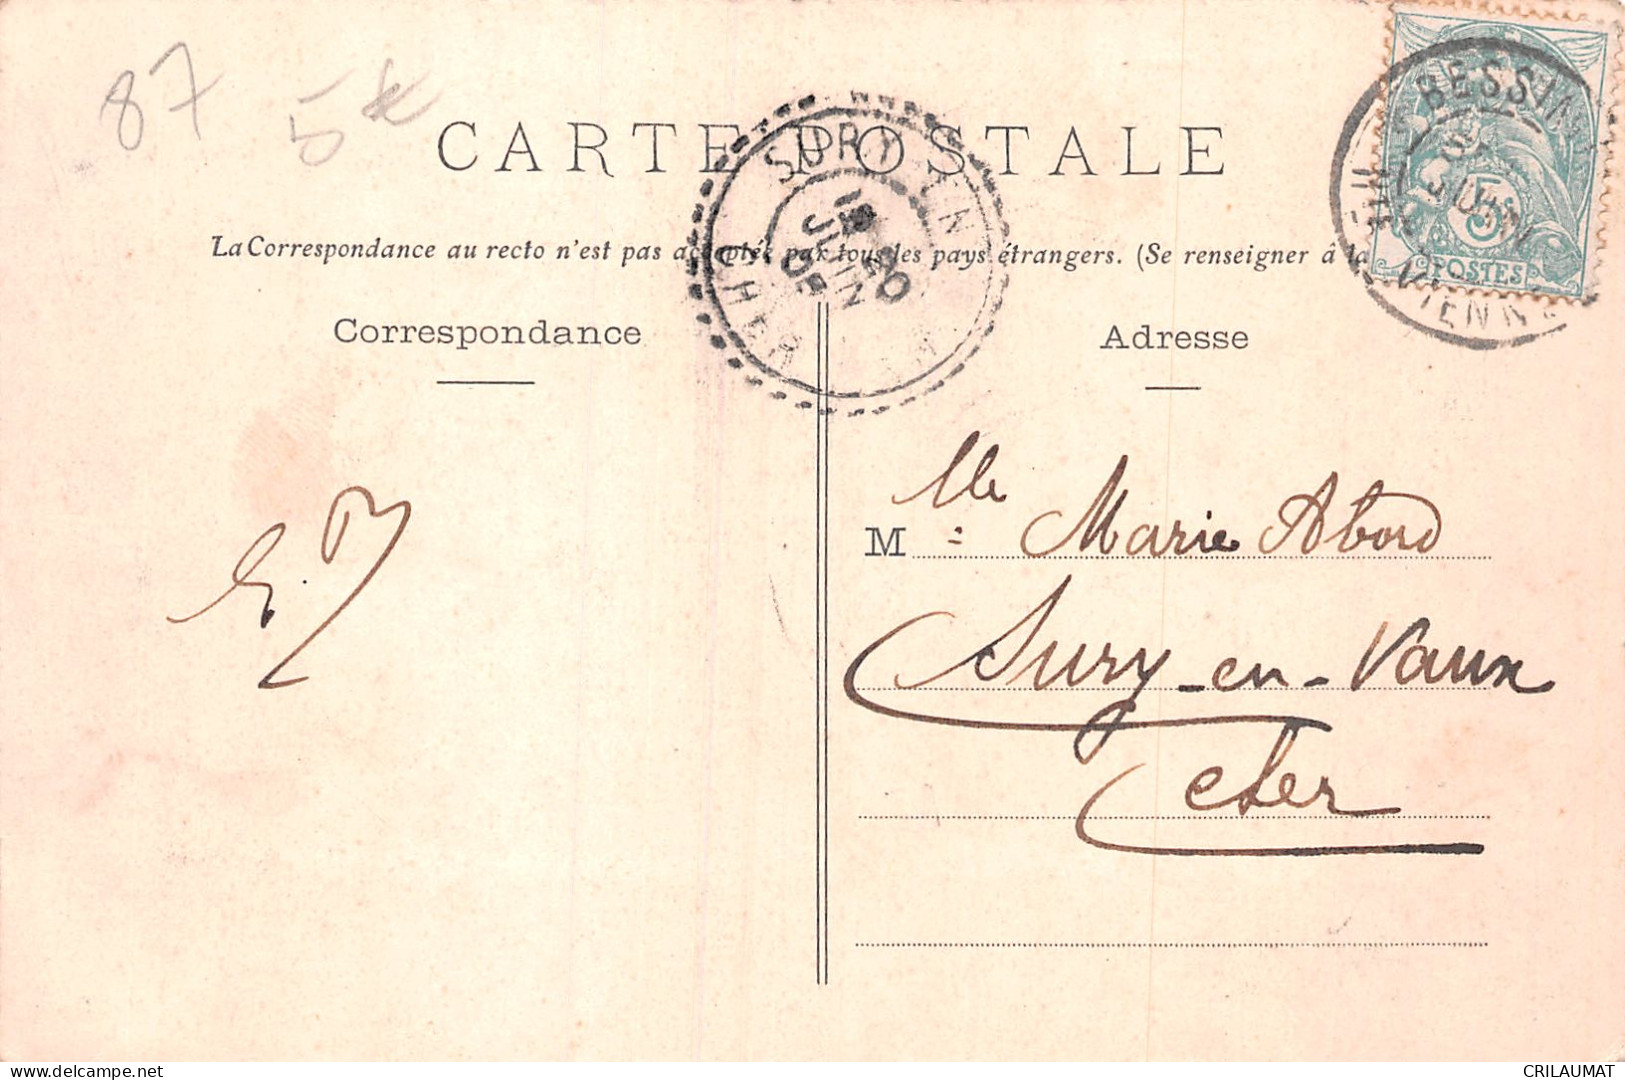 87 5
CARTE POSTALE
La Correspondance au recto n'est pas acceptée par tous les pays étrangers. (Se renseigner à la
Correspondance
Adresse
SURY EN
CHER
JUIN
BESSIN
JUIN
VIENNE
5c
POSTES
M lle Marie Abord
Sury-en-Vaux
Cher
www.delcampe.net
CRILAUMAT